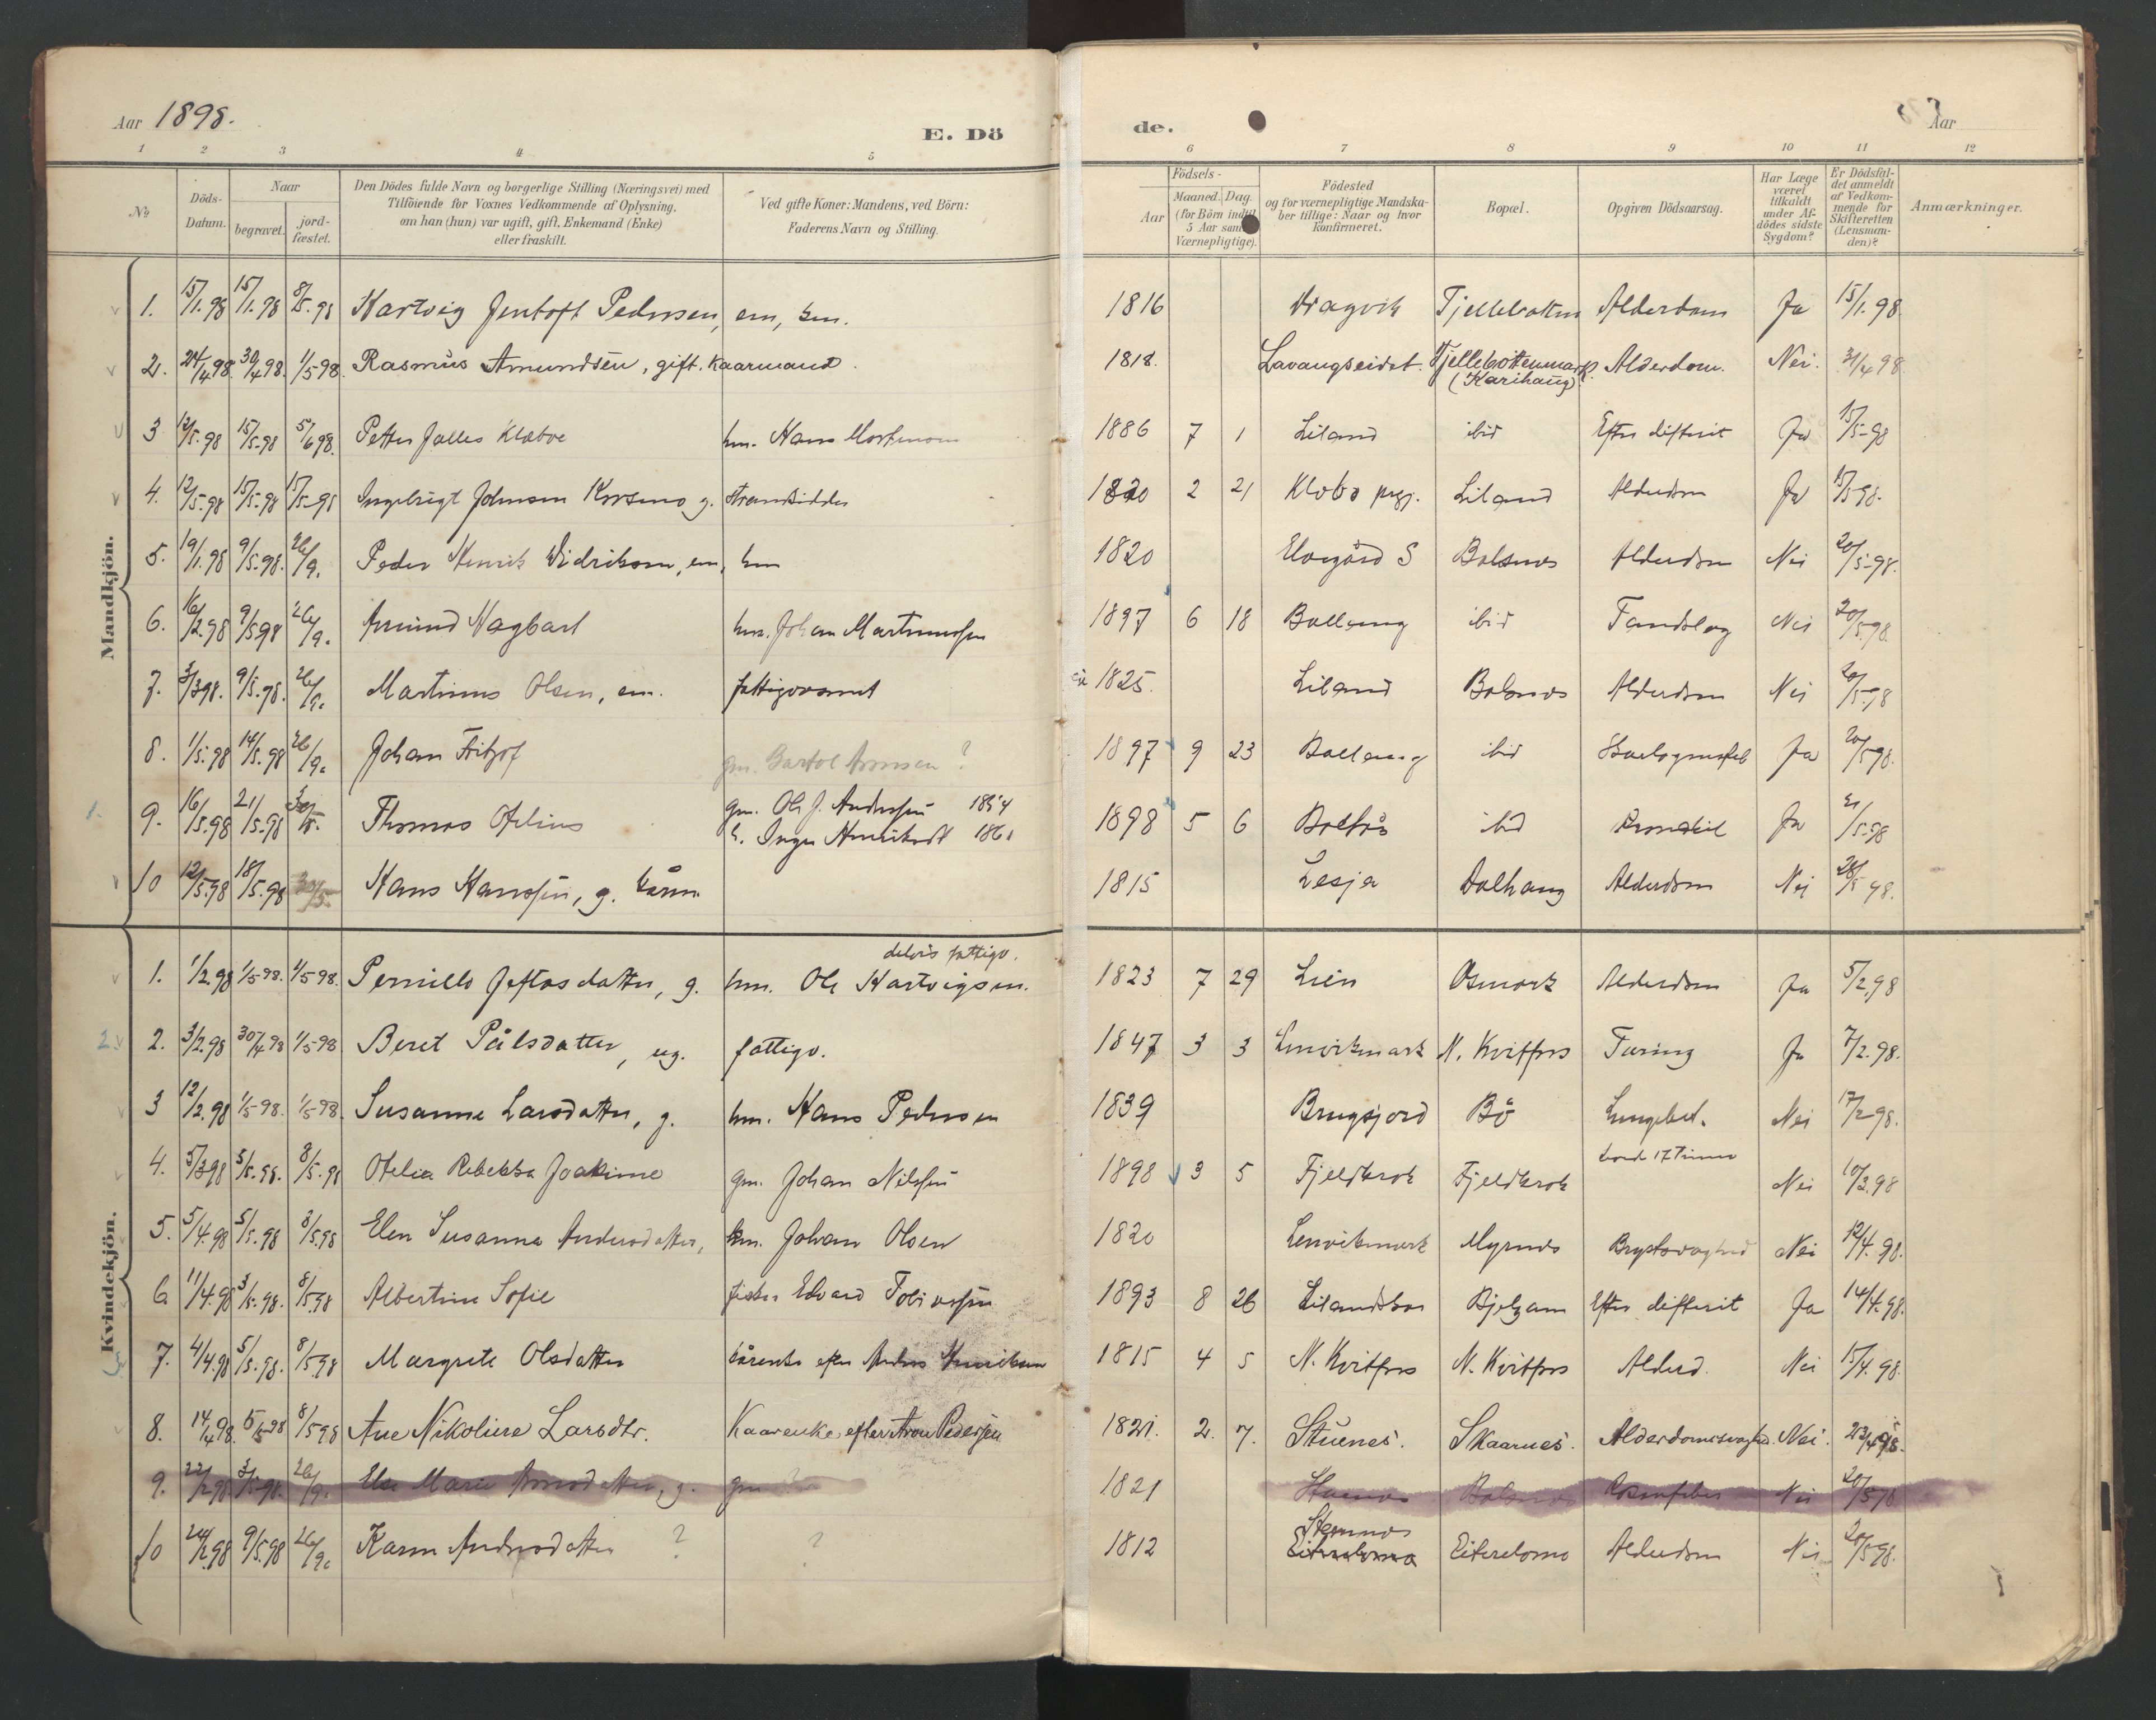 Aar 1898.
E. Dö
de.
Aar
1 2 3 4 5 6 7 8 9 10 11 12
No
Döds-Datum.
Naar
begravet.
jord-fæstet.
Den Dödes fulde Navn og borgerlige Stilling (Næringsvei) med
Tilföiende for Voxnes Vedkommende af Oplysning,
om han (hun) var ugift, gift, Enkemand (Enke)
eller fraskilt.
Ved gifte Koner: Mandens, ved Börn:
Faderens Navn og Stilling.
Födsels-
Aar
Maaned. Dag.
(for Börn indtil
5 Aar samt
Værnepligtige).
Födested
og for værnepligtige Mandska-
ber tillige: Naar og hvor
konfirmeret.
Bopæl.
Opgiven Dödsaarsag.
Har Læge
været
tilkaldt
under Af-
dödes sidste
Sygdom?
Er Dödsfal-
det anmeldt
af Vedkom-
mende for
Skifteretten
(Lensman-
den)?
Anmærkninger.
Mandkjön.
1. 15/1.98 15/1.98 8/5.98 Hartvig Jentoft Pedersen, em, km. 1816 Dragvik Fjeldbotten Alderdom Ja 15/1.98
2. 24/4.98. 30/4.98. 1/5.98. Rasmus Amundsen, gift. Kaarmand. 1818. Lavangseidet. Fjellebottenmark (Karihaug). Alderdom. Nei. 31/4 98
3 12/5.98 15/5.98 5/6 98. Petter Jalles Klæboe hm. Hans Mortenson 1886 7 1 Liland ibid Efter difterit Ja 15/5-98
4. 12/5.98 15/5.98 15/5-98 Ingebrigt Johnsen Korsmo g. Strandsidder 1820 2 21 Klæbo prgj. Liland Alderdom Ja 15/5 98.
5. 19/1.98 9/5.98. 26/9. Peder Henrik Didriksen, em, km 1820 Elvegård S Balsnes Alderdom Nei 20/5-98.
6. 16/2.98 9/5 98 26/9. Amund Hagbart hm. Johan Martinussen 1897 6 18 Ballang ibid Tandslag Nei 20/5.98.
7. 3/3 98. 9/5.98. 26/9. Martinus Olsen, em. fattigvæsenet ca 1825. Liland Balsnes Alderdom Nei 20/5-98
8. 1/5.98 14/5.98 26/9. Johan Fritjof gm. Bartol Arnsen ? 1897 9 23 Ballang ibid Ja 20/5 98.
9. 16/5.98 21/5.98 30/5. Thomas Ofelius gm. Ole J. Anderssen 1854
h. Inger 1861 1898 5 6 Boltås ibid Ja 21/5-98
10 12/5.98 18/5.98 30/5. Hans Hanssen, g. kårm. 1815 Lesja Dalhaug Alderdom Nei 28/5 98.
Kvindekjön.
1. 1/2.98 1/5-98. 1/5 98. Pernille Jeftasdatter, g. hm. Ole Hartvigsen. delvis fattigv. 1823 7 29 Lien Osmark Alderdom Ja 5/2.98
2. 3/2.98 30/4 98 1/5-98 Beret Pålsdatter, ug. fattigv. 1847 3 3 Lenvikmark N. Kvitfors Tæring Ja 7/2.98.
3 12/2.98 1/5-98. 1/5-98. Susanne Larsdatter, g. hm. Hans Pedersen 1839 Brugsjord Bö Lungebet. Nei 17/2 98.
4. 5/3 98 5/5.98. 8/5.98 Ofelia Rebekka Joakime gm. Johan Nilssen 1898 3 5 Fjeldkrok Fjeldkrok levede 17 Timer Nei 10/3.98
5. 5/4.98 5/5.98 8/5.98 Elen Susanna Andersdatter, km. Johan Olsen 1820 Lenvikmark Myrnes Brystsvaghed Nei 12/4.98.
6 11/4.98 3/5.98. 8/5 98 Albertine Sofie fisker Edvard Tobiassen 1893 8 26 Lilandskar Bjelgam Efter difterit Ja 14/4.98.
7. 4/4.98 5/5.98. 8/5 98 Margrete Olsdatter kårenke efter Anders Henriksen 1815 4 5 N. Kvitfors N. Kvitfors Alderd. Nei 15/4.98.
8. 14/4 98. 5/5-98 8/5 98 Ane Nikoline Larsdtr. Kaarenke efter Aron Pedersen 1821. 2. 7. Stuenes. Skaarnes. Alderdomssvaghed. Nei. 23/4 98.
9. 22/2 98 3/5.98. 26/9. Else Marie Arnsdatter, g. gm 1821 Stunes Balsnes Nei 20/5 98
10 24/2 98 9/5.98 26/9. Karen Andersdatter ? ? 1812 Stennes Eiterelomo Eiterelomo Alderdom Nei 20/5 98.